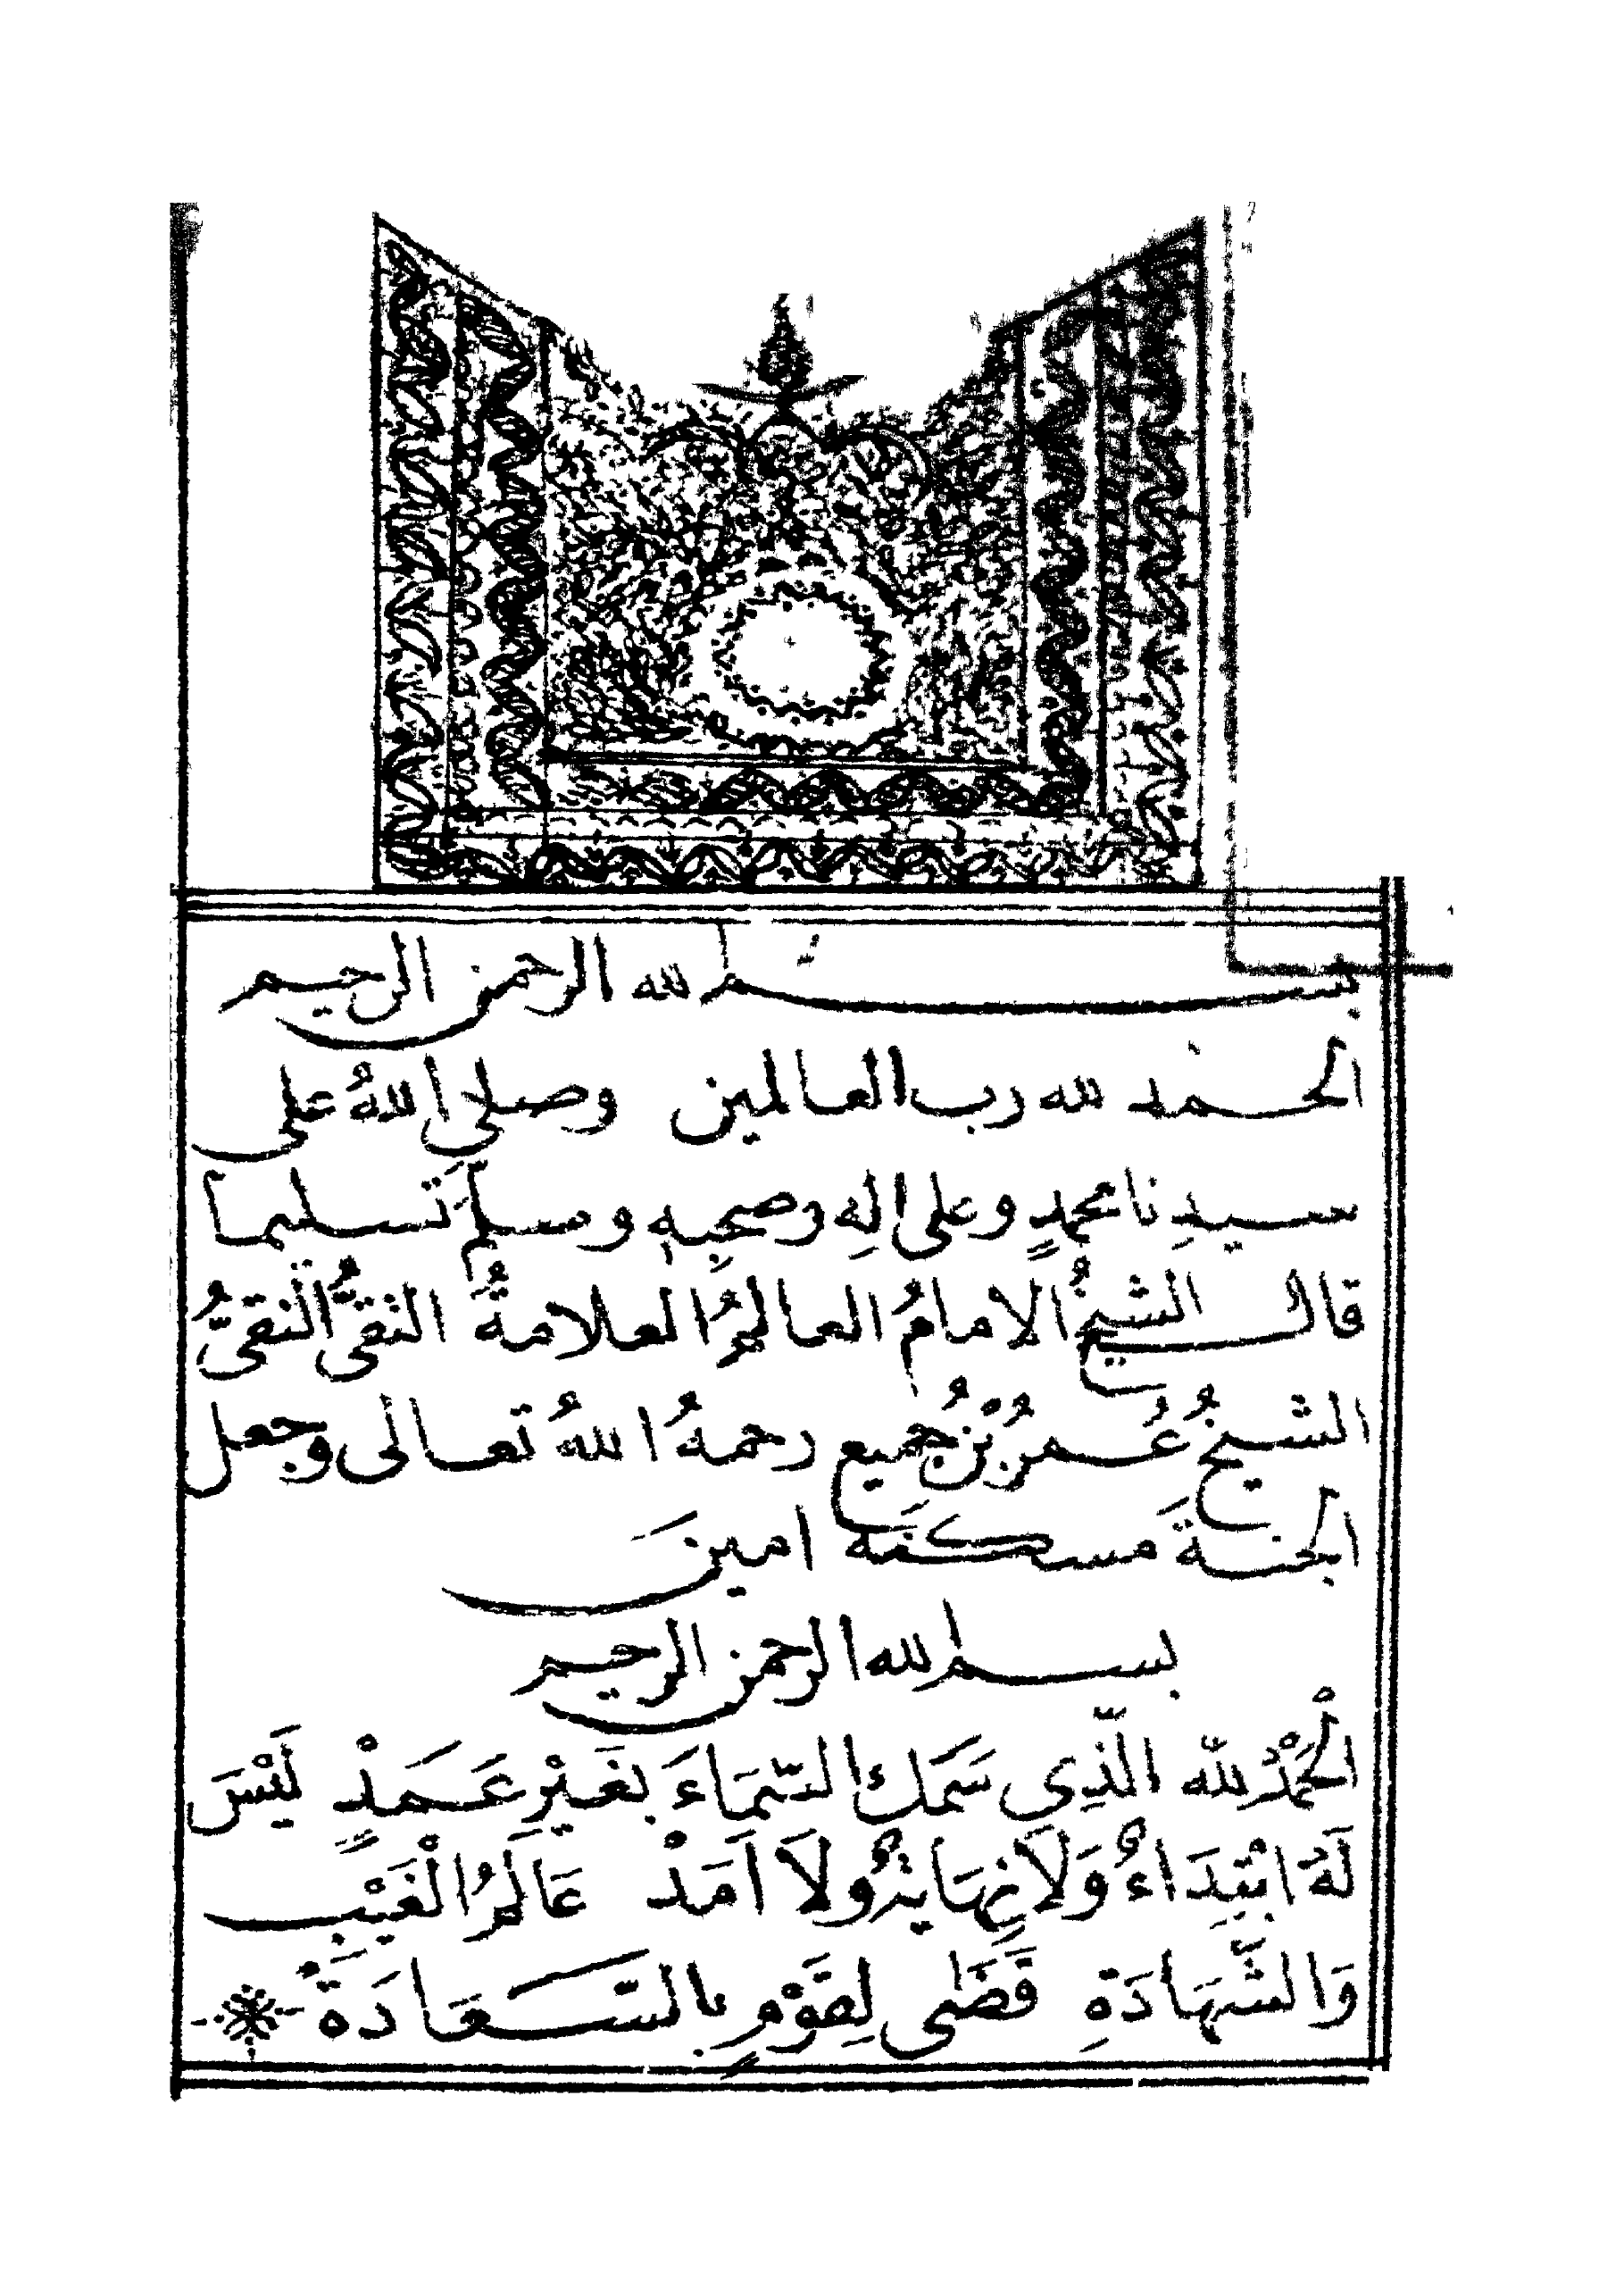 بسم الله الرحمن الرحيم
الحمد لله رب العالمين وصلى اللهُ على
سيدِنا محمدٍ وعلى الِهِ وصحبِهِ وسلمَ تسليما
قال الشيخُ الامامُ العالمُ العلامةُ التقىُّ النقىُّ
الشيخُ عُمرُ بْنُ جُميع رحمهُ اللهُ تعالى وجعل
الجنةَ مسكنَه امينَ
بسم الله الرحمن الرحيم
الْحَمْدُ لِلّه الَّذِى سَمَكَ السَّمَاءَ بغَيْرِ عَمَدٍ لَيْسَ
لَهُ ابْتِدَاءٌ وَلاَ نِهَايةٌ ولاَ اَمَدْ عَالِمُ الْغَيْبِ
وَالشَّهَادَةِ قَضَى لِقَوْمٍ بالسَّعَادَةْ